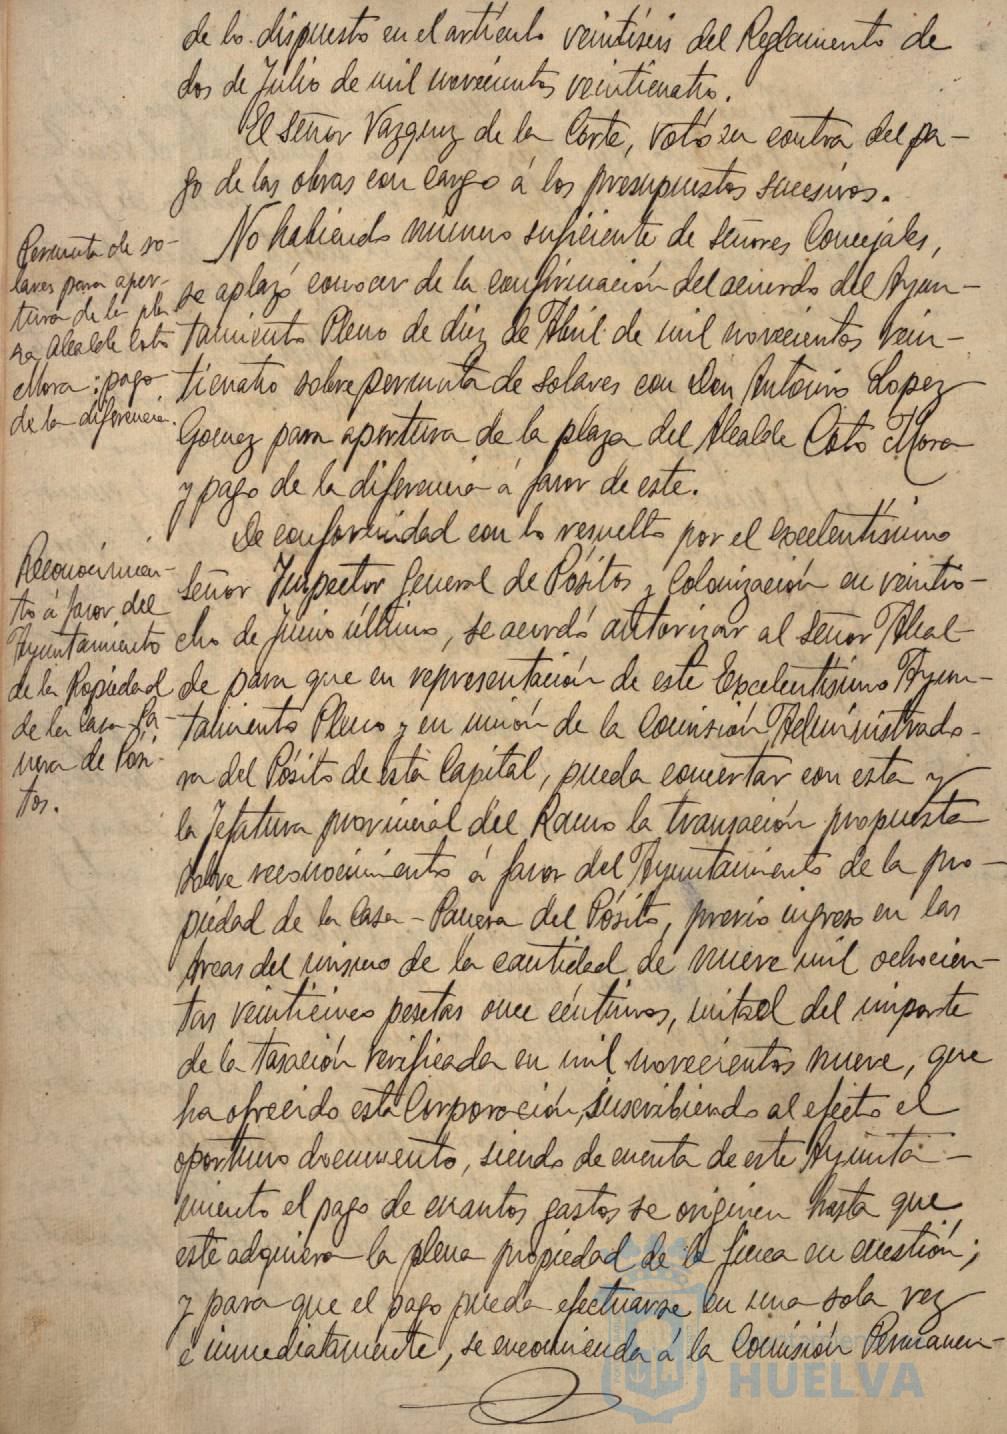 de lo dispuesto en el artículo veintiseis del Reglamento de
dos de Julio de mil novecientos veinticuatro.
El señor Vazquez de la Corte, votó en contra del pa-
go de las obras con cargo á los presupuestos sucesivos.
Permuta de so-
lares para aper-
tura de la pla
za Alcalde Coto
Mora; pago
de la diferencia.
No habiendo número suficiente de señores Concejales,
se aplazó conocer de la confirmación del acuerdo del Ayun-
tamiento Pleno de diez de Abril de mil novecientos vein-
ticuatro sobre permuta de solares con Don Antonio Lopez
Gomez para apertura de la plaza del Alcalde Coto Mora
y pago de la diferencia á favor de este.
Reconocimien-
to á favor del
Ayuntamiento
de la Propiedad
de la Casa Pa-
nera de Pósi-
tos.
De conformidad con lo resuelto por el excelentísimo
señor Inspector General de Pósitos y Colonización en veintio-
cho de Junio último, se acordó autorizar al señor Alcal-
de para que en representación de este Excelentísimo Ayun-
tamiento Pleno y en unión de la Comisión Administrado-
ra del Pósito de esta Capital, pueda concertar con esta y
la Jefatura provincial del Ramo la transación propuesta
sobre reconocimiento á favor del Ayuntamiento de la pro-
piedad de la Casa-Panera del Pósito, previo ingreso en las
arcas del mismo de la cantidad de nueve mil ochocien-
tas veinticinco pesetas once céntimos, mitad del importe
de la tasación verificada en mil novecientos nueve, que
ha ofrecido esta Corporación, suscribiendo al efecto el
oportuno documento, siendo de cuenta de este Ayunta-
miento el pago de cuantos gastos se originen hasta que
este adquiera la plena propiedad de la finca en cuestión;
y para que el pago pueda efectuarse en una sola vez
é inmediatamente, se encomienda á la Comisión Permanen-
Ayuntamiento
HUELVA